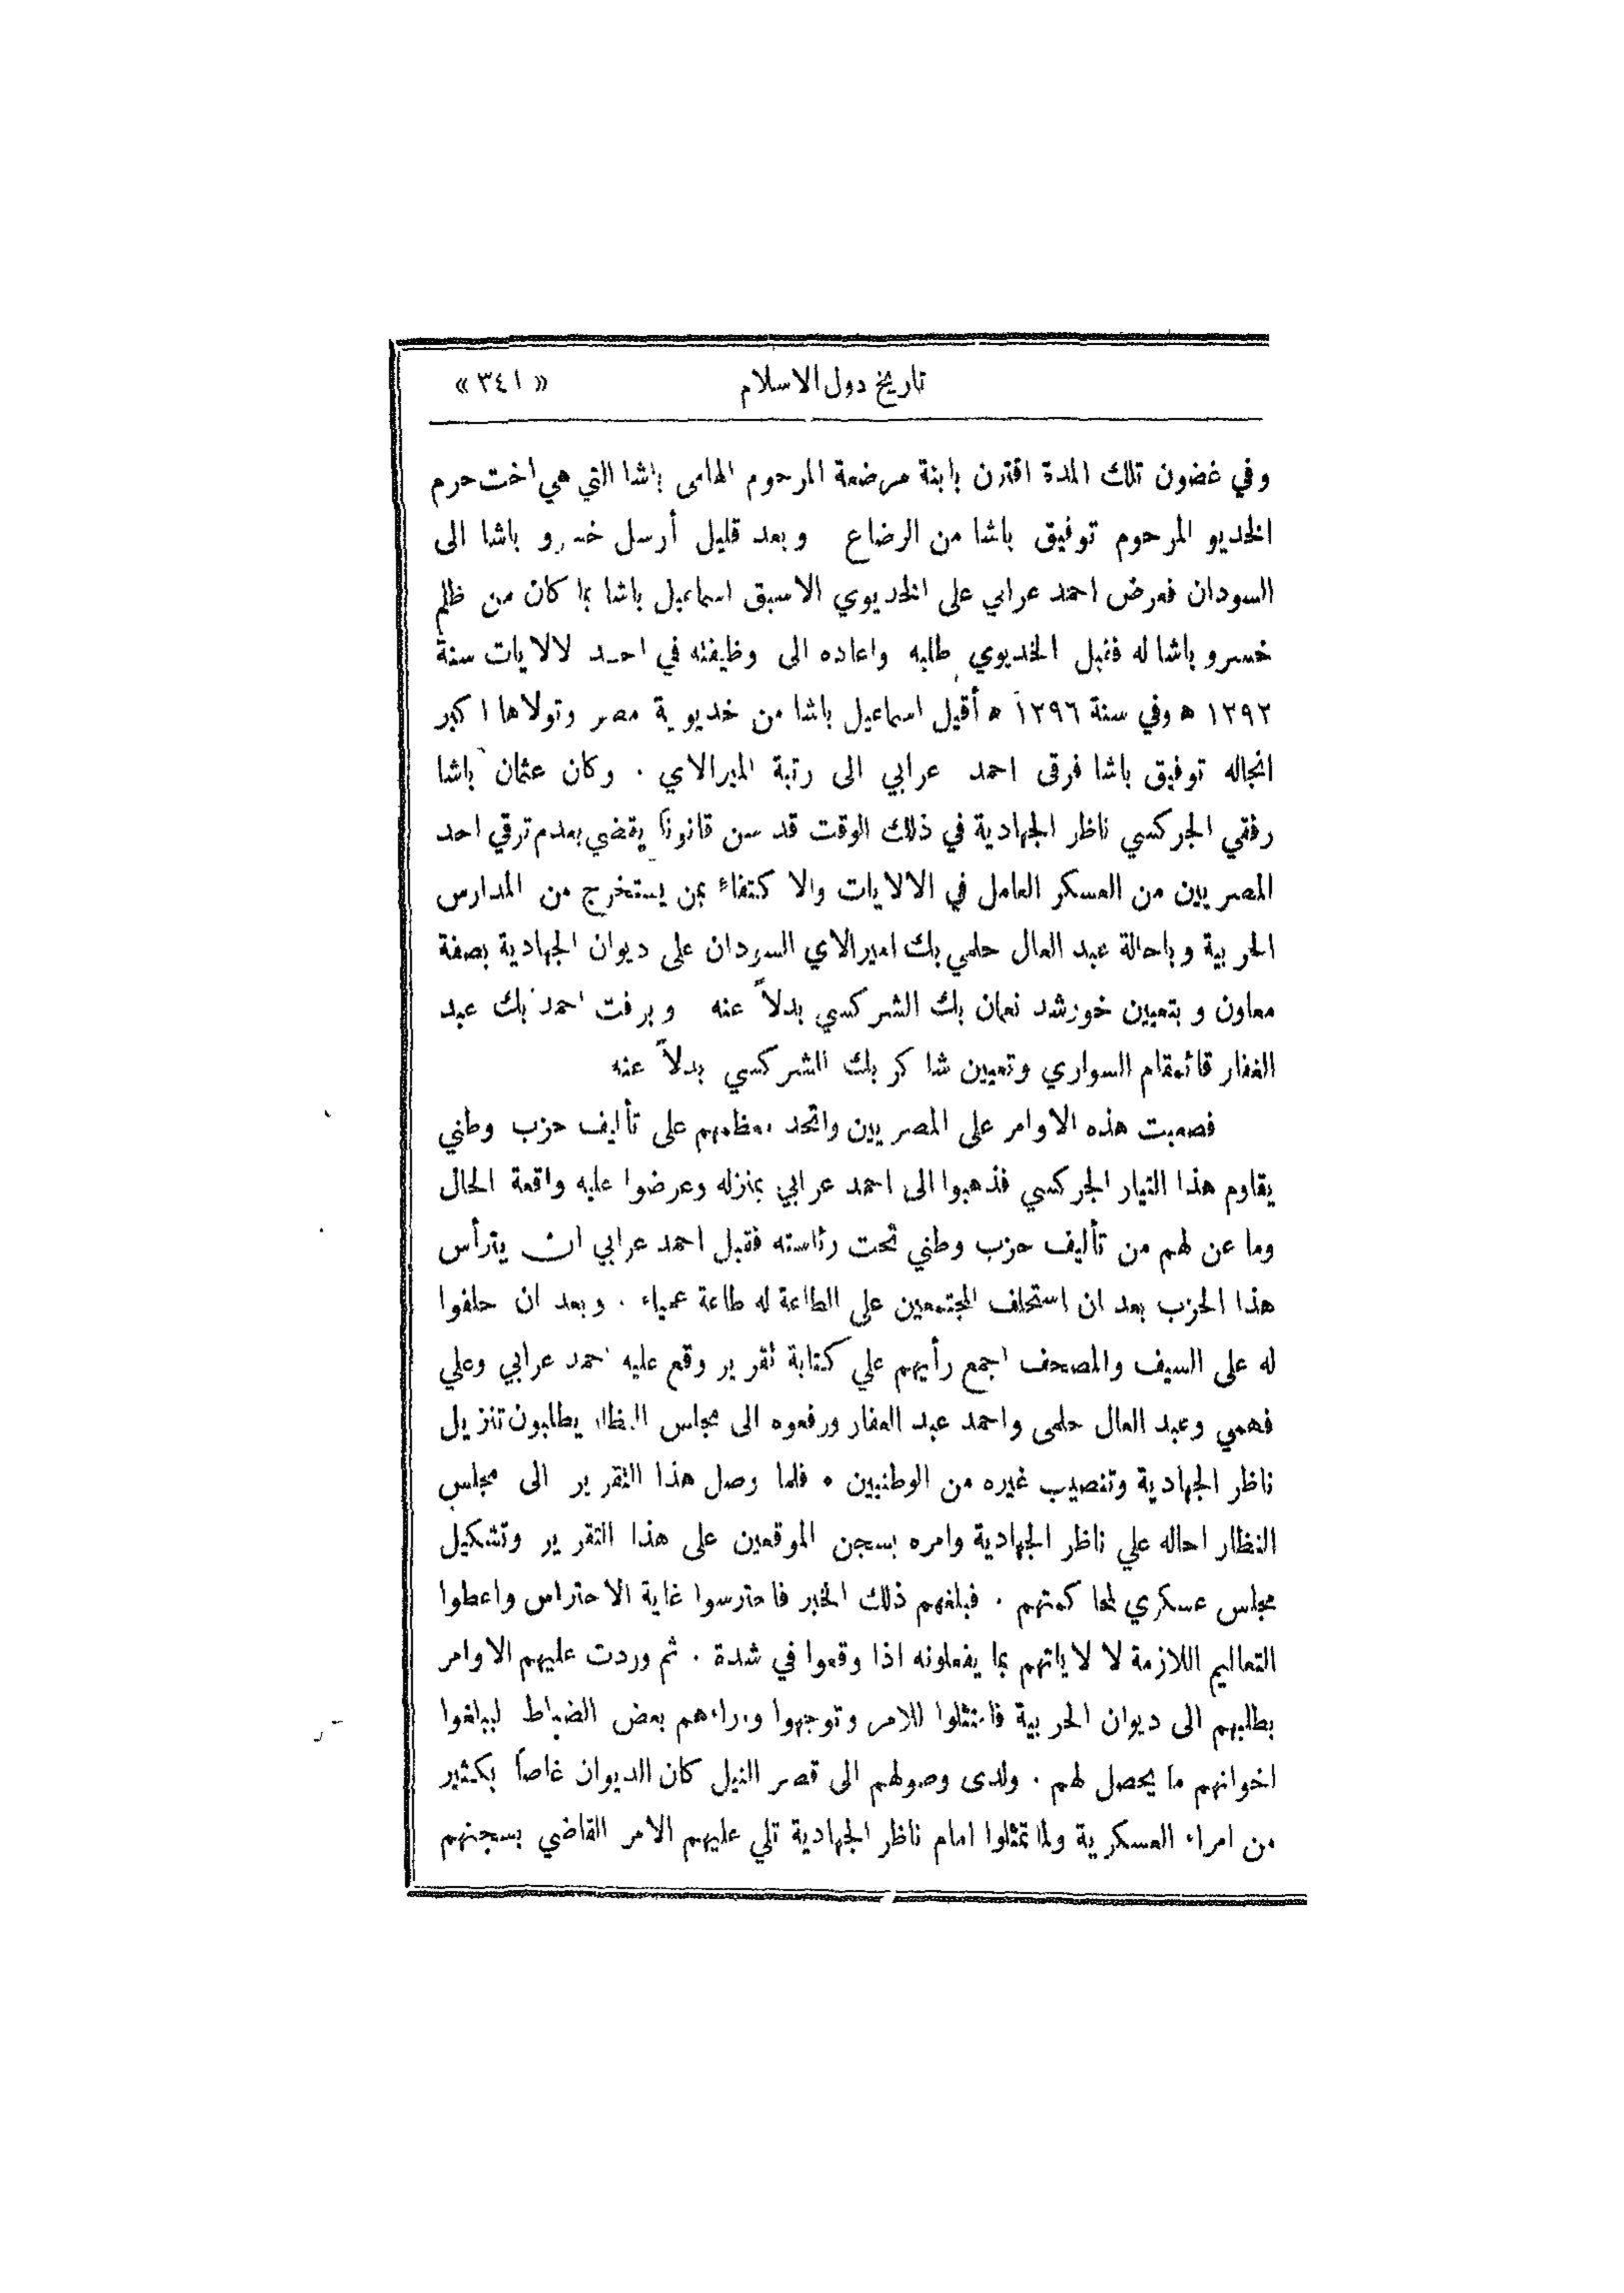 تاريخ دول الاسلام « ٣٤١ »
وفي غضون تلك المدة اقترن بابنة مرضعة المرحوم الهامى باشا التي هي اخت حرم
الخديو المرحوم توفيق باشا من الرضاع وبعد قليل أرسل خسرو باشا الى
السودان فعرض احمد عرابي على الخديوي الاسبق اسماعيل باشا بما كان من ظلم
خسرو باشا له فقبل الخديوي طلبه واعاده الى وظيفته في احد لالايات سنة
١٢٩٢ ه وفي سنة ١٢٩٦ ه أقيل اسماعيل باشا من خديوية مصر وتولاها اكبر
انجاله توفيق باشا فرقى احمد عرابي الى رتبة الميرالاي . وكان عثمان باشا
رفقي الجركسي ناظر الجهادية في ذلك الوقت قد سن قانوناً يقضي بعدم ترقي احد
المصريين من العسكر العامل في الالايات والاكتفاء بمن يستخرج من المدارس
الحربية وباحالة عبد العال حلمي بك اميرالاي السودان على ديوان الجهادية بصفة
معاون وبتعيين خورشد نعمان بك الشركسي بدلاً عنه وبرفت احمد بك عبد
الغفار قائمقام السواري وتعيين شاكر بك الشركسي بدلاً عنه
فصعبت هذه الاوامر على المصريين واتحد معظمهم على تأليف حزب وطني
يقاوم هذا التيار الجركسي فذهبوا الى احمد عرابي بمنزله وعرضوا عليه واقعة الحال
وما عن لهم من تأليف حزب وطني تحت رئاسته فقبل احمد عرابي ان يترأس
هذا الحزب بعد ان استحلف المجتمعين على الطاعة له طاعة عمياء . وبعد ان حلفوا
له على السيف والمصحف اجمع رأيهم علي كتابة تقرير وقع عليه احمد عرابي وعلي
فهمي وعبد العال حلمى واحمد عبد الغفار ورفعوه الى مجلس النظار يطلبون تنزيل
ناظر الجهادية وتنصيب غيره من الوطنيين . فلما وصل هذا التقرير الى مجلس
النظار احاله علي ناظر الجهادية وامره بسجن الموقعين على هذا التقرير وتشكيل
مجلس عسكري لمحاكمتهم . فبلغهم ذلك الخبر فاحترسوا غاية الاحتراس واعطوا
التعاليم اللازمة لا لاياتهم بما يفعلونه اذا وقعوا في شدة . ثم وردت عليهم الاوامر
بطلبهم الى ديوان الحربية فامتثلوا للامر وتوجهوا وراءهم بعض الضباط ليبلغوا
اخوانهم ما يحصل لهم . ولدى وصولهم الى قصر النيل كان الديوان غاصاً بكثير
من امراء العسكرية ولما تمثلوا امام ناظر الجهادية تلي عليهم الامر القاضي بسجنهم